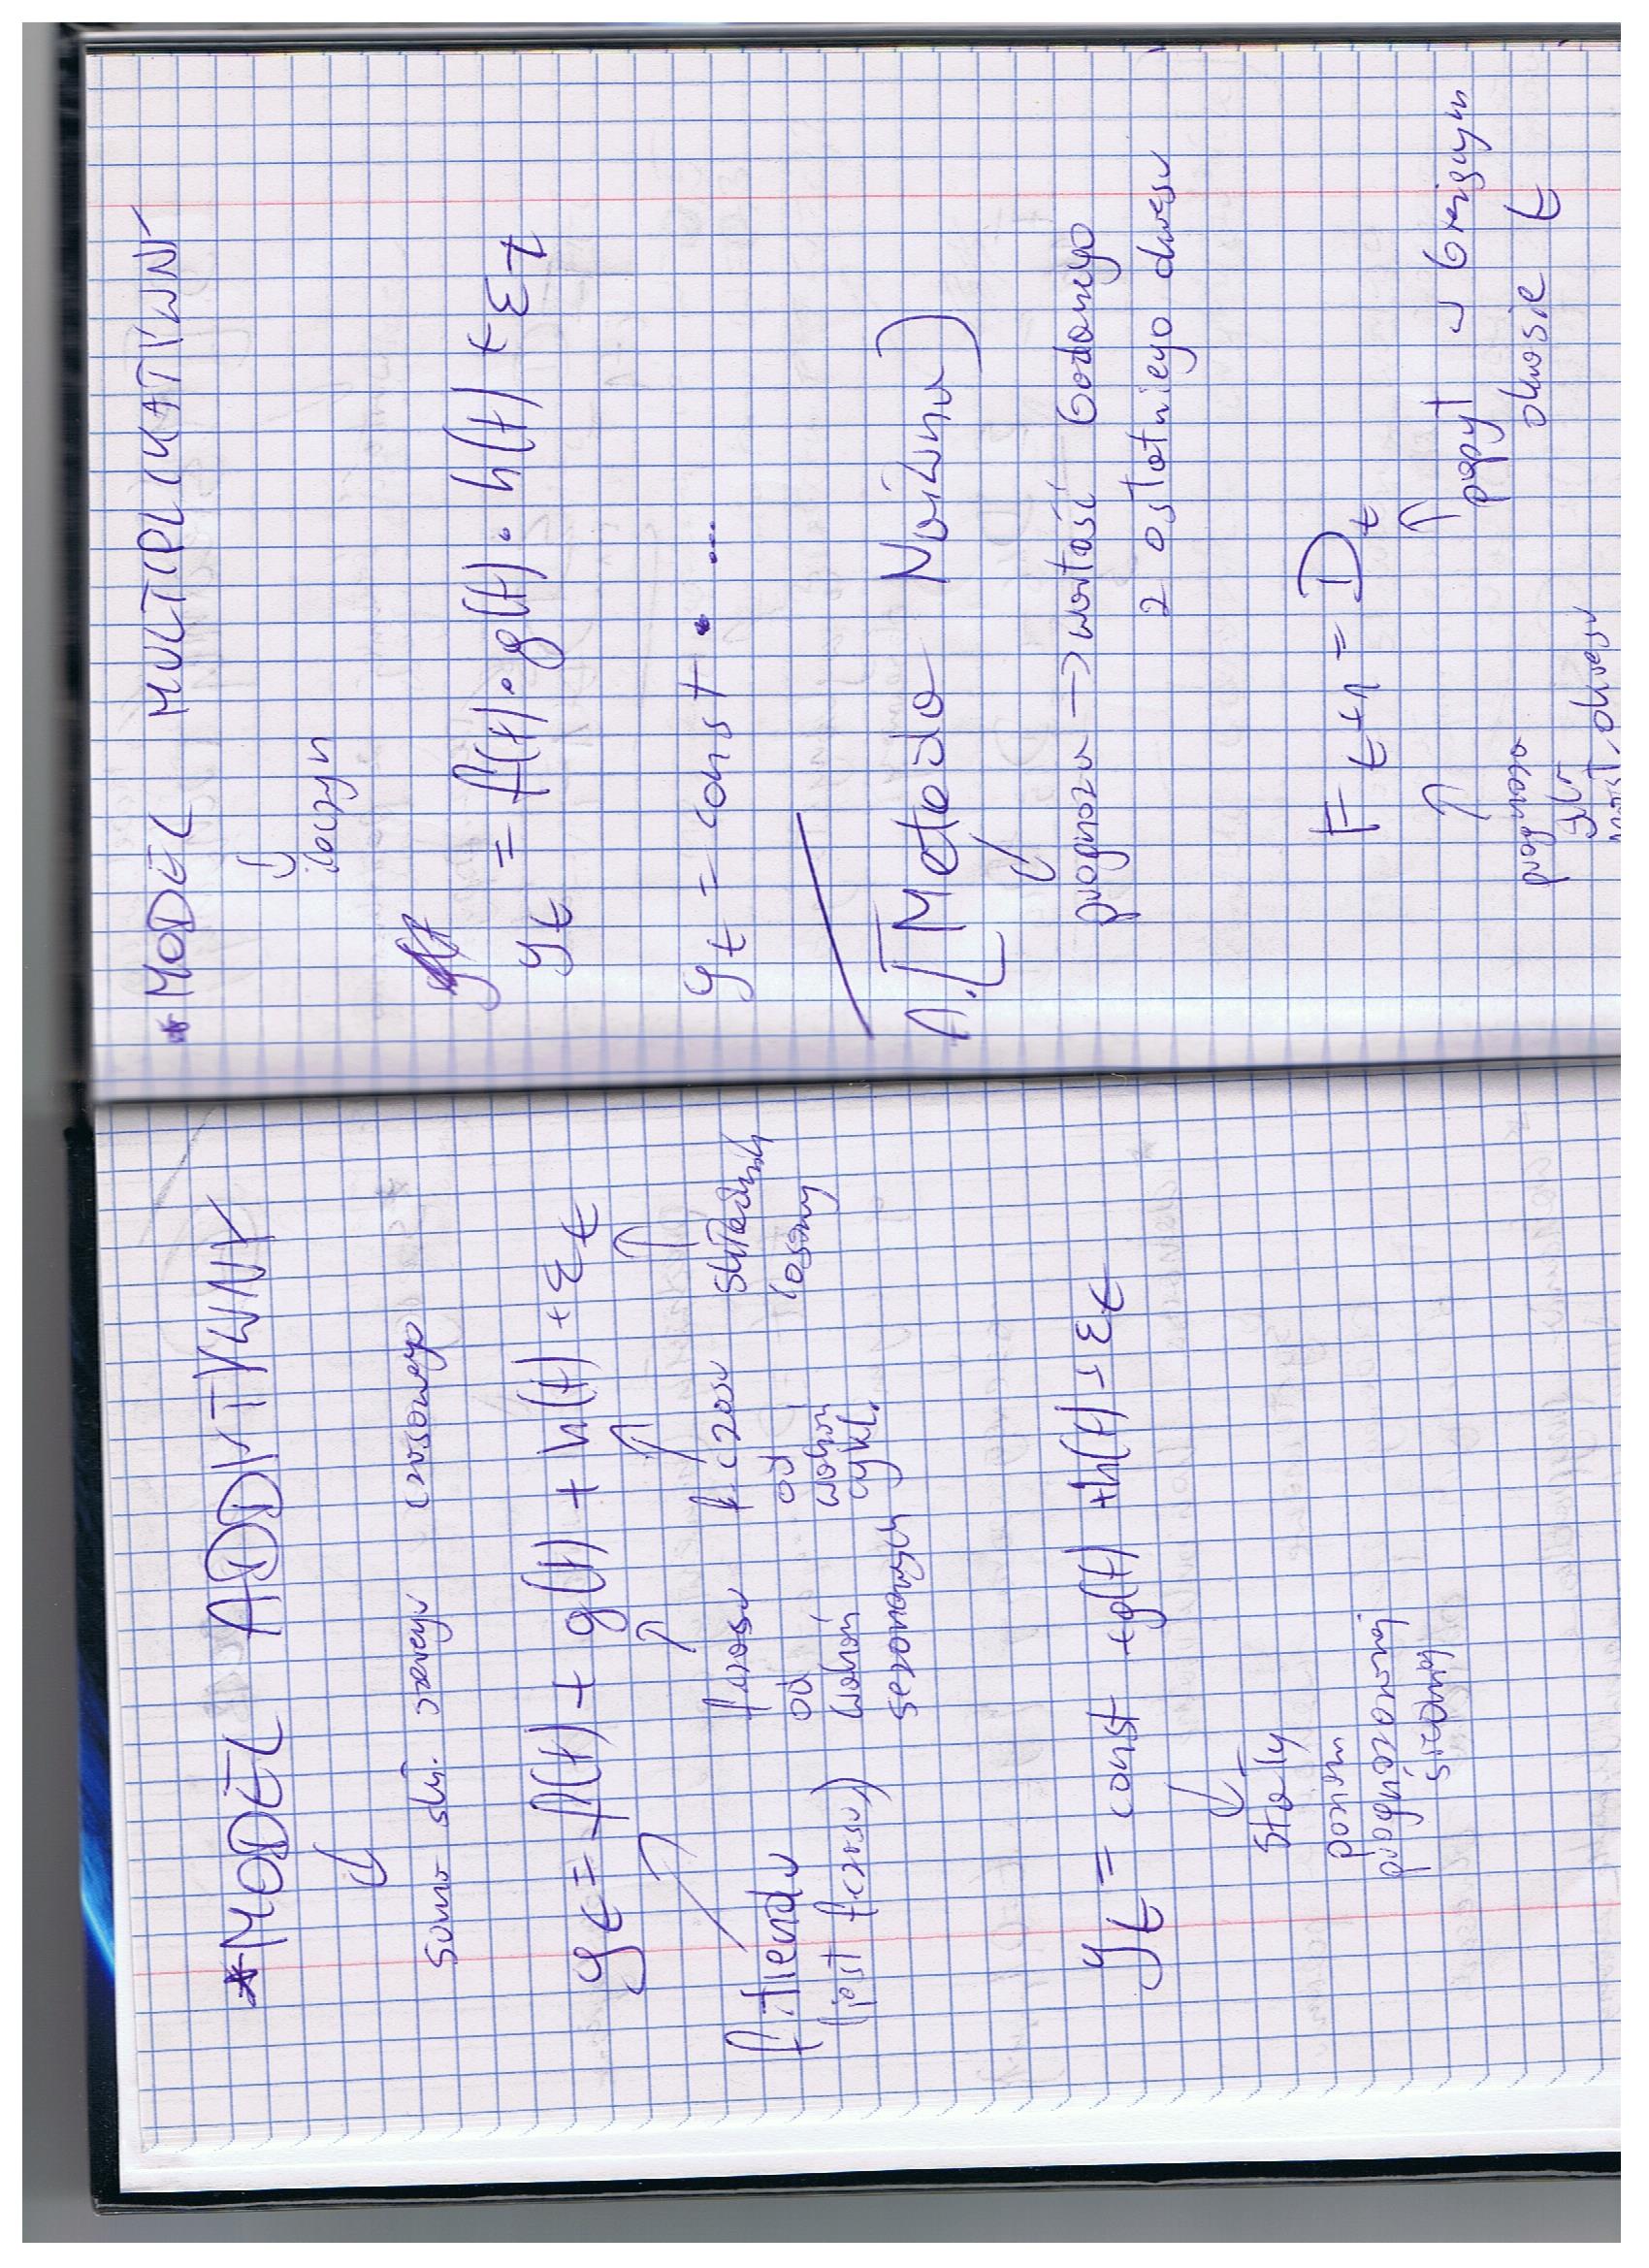 * MODEL ADDYTYWNY
↓
suma skł. szeregu czasowego
y_t = f(t) + g(t) + h(t) + ε_t
f. trendu
(jest f. czasu)
f. czasu
od
wahań
sezonowych
f. czasu
od
wahań
cykl.
składnik
losowy
y_t = const + g(t) + h(t) + ε_t
↓
stały
poziom
prognozowanej
* MODEL MULTIPLIKATYWNY
↓
iloczyn
y_t = f(t) · g(t) · h(t) + ε_t
y_t = const · ...
1. [Metoda Naiwna)
↓
prognoza → wartość badanego
z ostatniego okresu
F_t+1 = D_t
↑
prognoza
na
nast. okresu
↑
popyt w bieżącym
okresie t